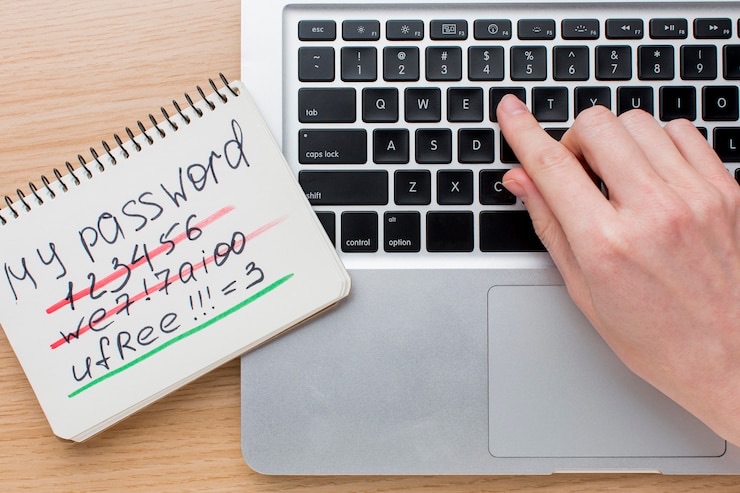 My password
123456
we7!7aioo
ufRee!!!=3
esc F1 F2 F3 F4 F5 F6 F7 F8 F9
~ ! @ # $ % ^ & *
1 2 3 4 5 6 7 8 9
tab Q W E T Y U I O
caps lock A S D
shift Z X C
alt
control option